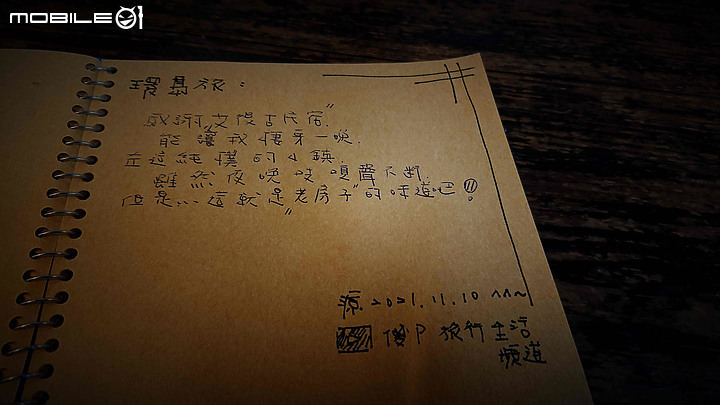 MOBILE01
環島旅:
感謝"文俊古民宿"
能讓我棲身一晚.
在這純樸的小鎮.
雖然夜晚吱嘎聲不斷.
但是...這就是"老房子"的味道吧!!
2021.11.10 ^^~
旅行生活
頻道